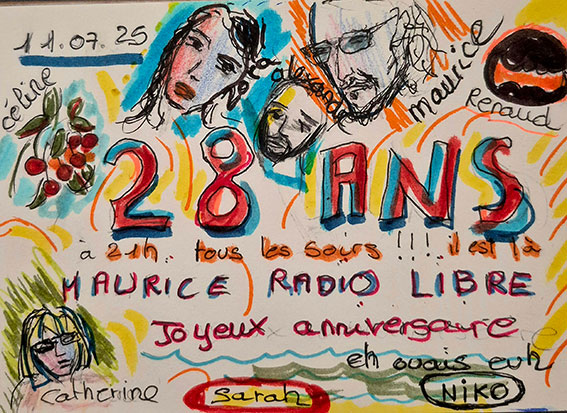 11.07.25
céline
alexandre
maurice
Renaud
28 ANS
à 21h.. tous les soirs !!!! il est là
MAURICE RADIO LIBRE
Joyeux anniversaire
eh ouais euh
Catherine
Sarah
NIKO